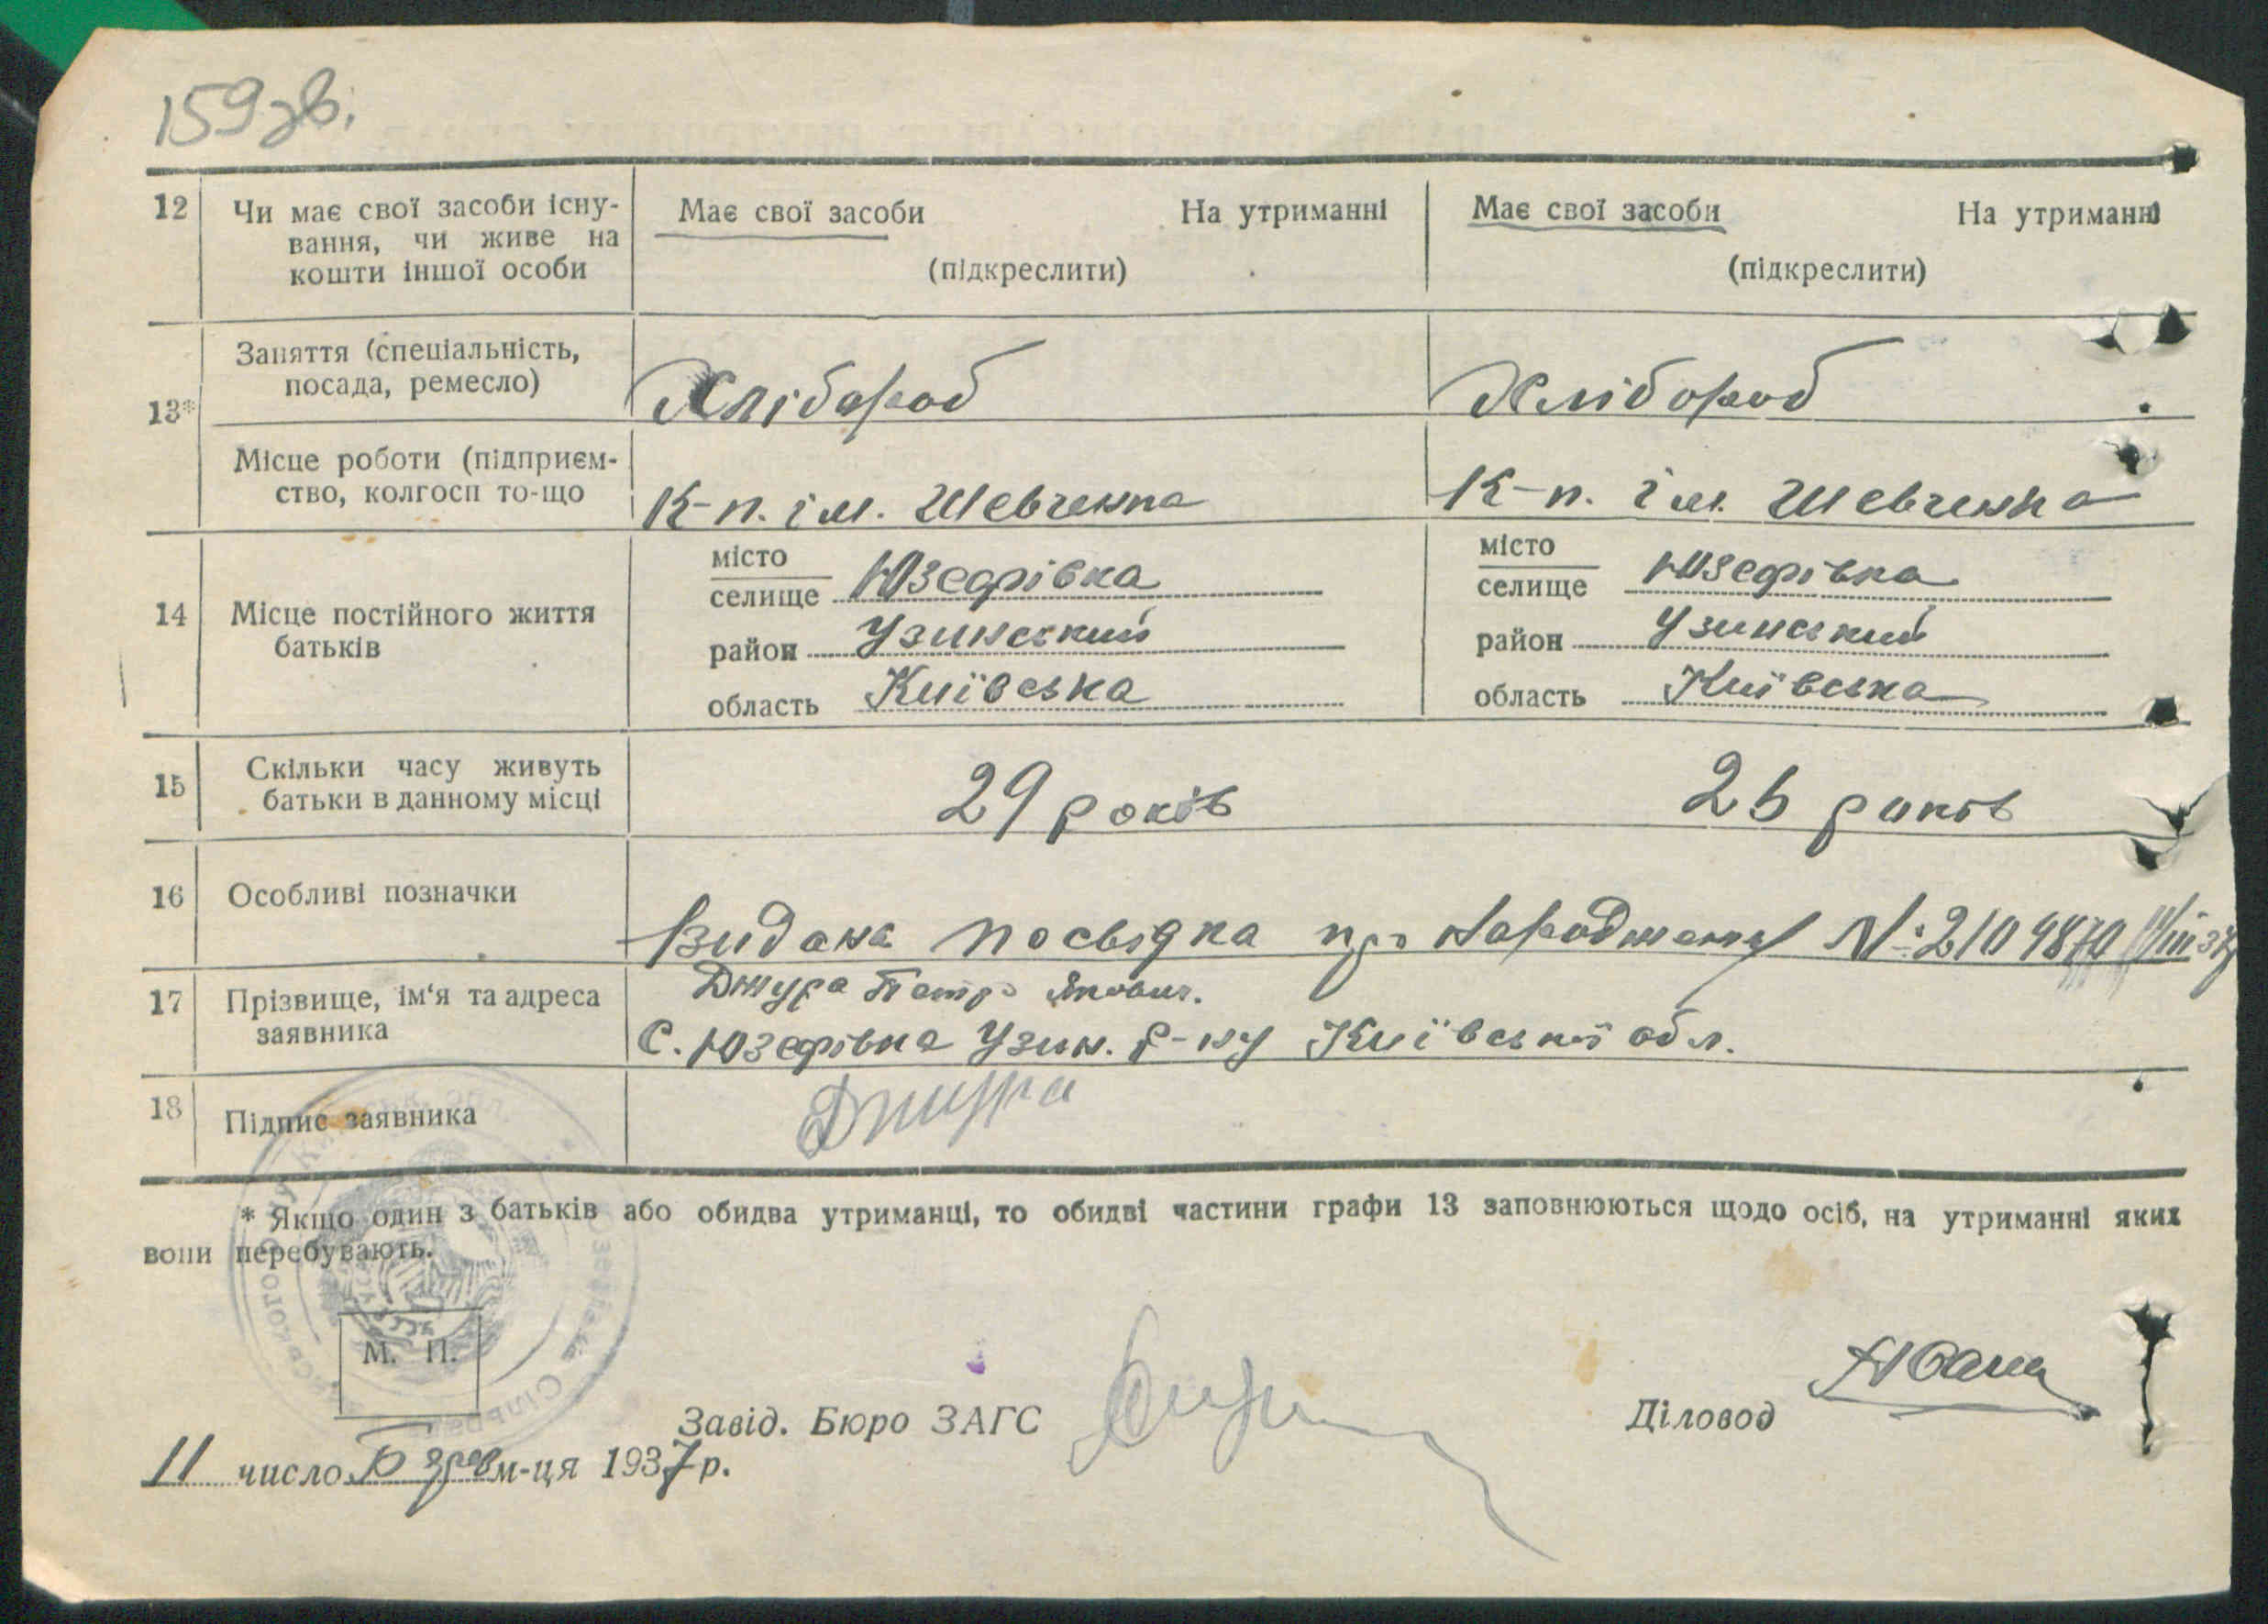 159 зв.
12
Чи має свої засоби існу-
вання, чи живе на
кошти іншої особи
Має свої засоби На утриманні
(підкреслити)
Має свої засоби На утриманні
(підкреслити)
13*
Заняття (спеціальність,
посада, ремесло)
Хлібороб
Хлібороб
Місце роботи (підприєм-
ство, колгосп то-що
К-п. ім. Шевченка
К-п. ім. Шевченка
14
Місце постійного життя
батьків
місто
селище Юзефівка
район Узинський
область Київська
місто
селище Юзефівка
район Узинський
область Київська
15
Скільки часу живуть
батьки в данному місці
29 років
25 років
16
Особливі позначки
Видана посвідка про народження № 2109870
17
Прізвище, ім'я та адреса
заявника
Джура Петро Якович.
С. Юзефівка Узин. р-ну Київської обл.
18
Підпис заявника
Джура
* Якщо один з батьків або обидва утриманці, то обидві частини графи 13 заповнюються щодо осіб, на утриманні яких
вони перебувають.
М. П.
Завід. Бюро ЗАГС
Діловод
11 число м-ця 1937 р.